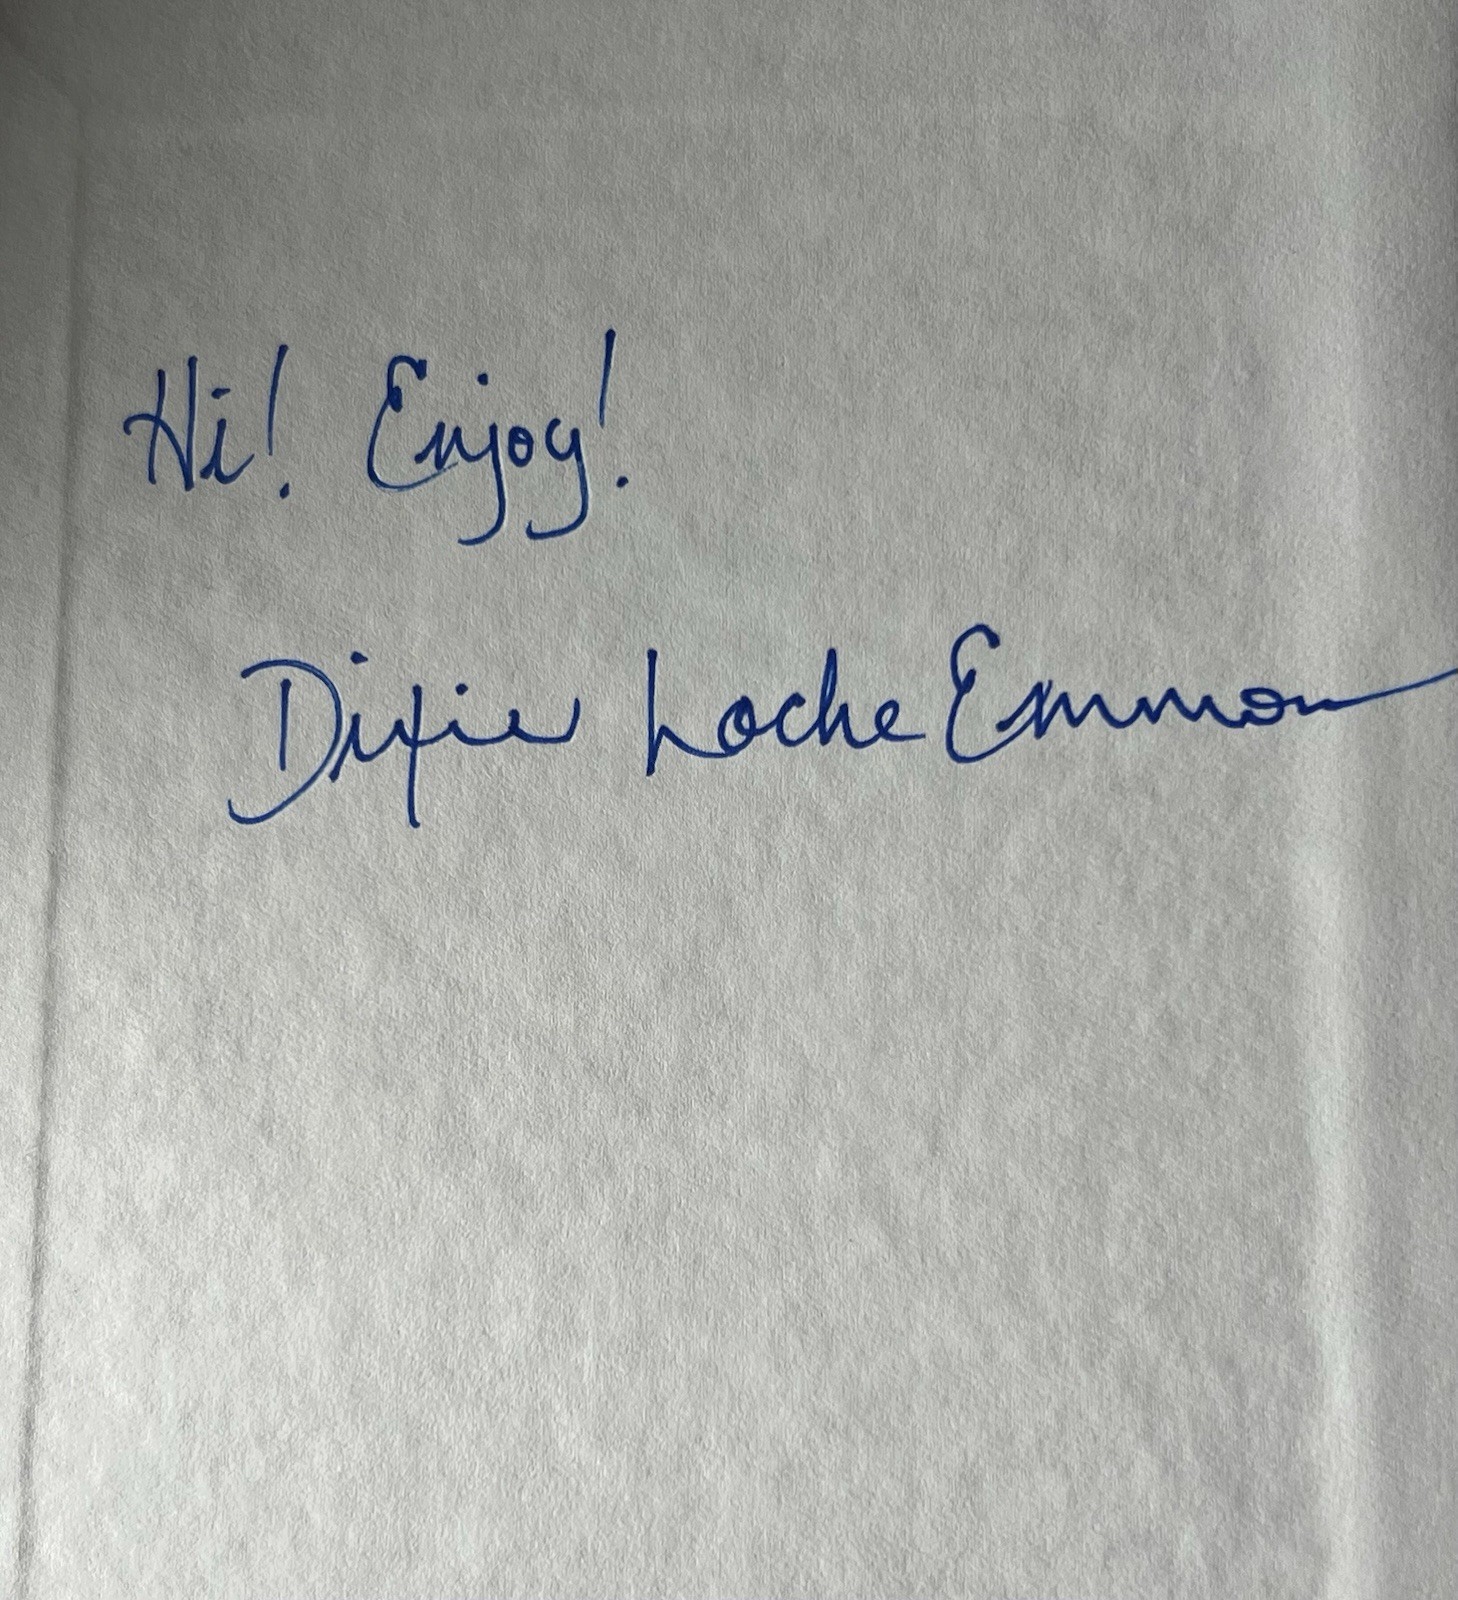 Hi! Enjoy!
Dixie Locke Emmons